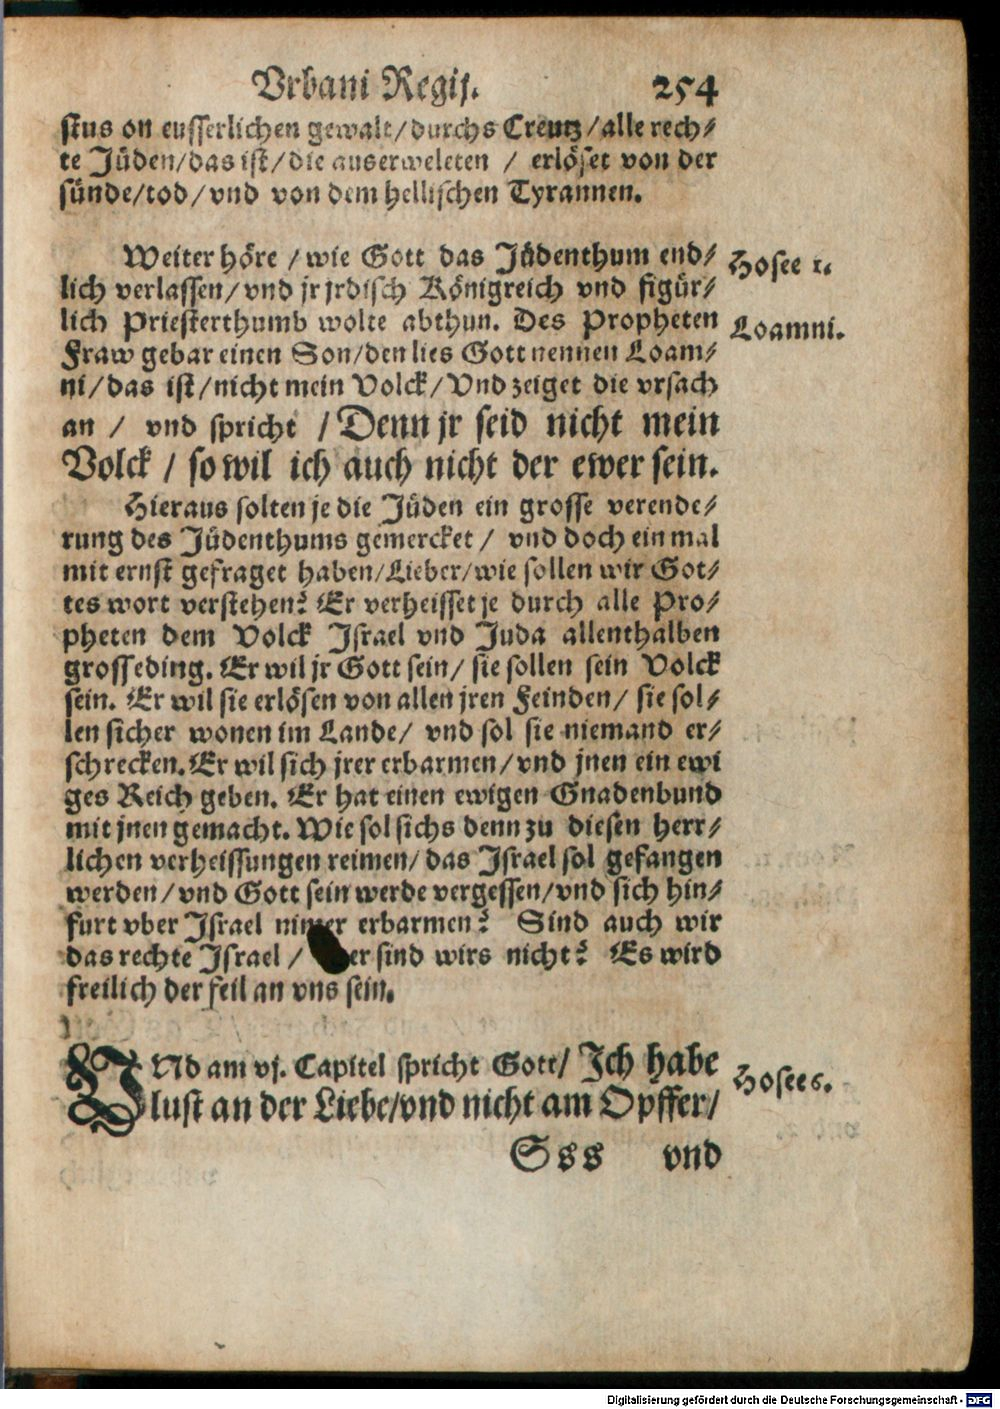 Vrbani Regij. 254
stus on eusserlichen gewalt/durchs Creutz/alle rech⸗
te Jüden/das ist/die auserweleten / erlöset von der
sünde/tod/vnd von dem hellischen Tyrannen.
Weiter höre /wie Gott das Jüdenthum end⸗
Hosee 1.
lich verlassen/vnd jr jrdisch Königreich vnd figür⸗
lich Priesterthumb wolte abthun. Des Propheten
Loamni.
Fraw gebar einen Son/den lies Gott nennen Loam⸗
ni/das ist/nicht mein Volck/Vnd zeiget die vrsach
an / vnd spricht /Denn jr seid nicht mein
Volck / so wil ich auch nicht der ewer sein.
Hieraus solten je die Jüden ein grosse verende⸗
rung des Jüdenthums gemercket / vnd doch ein mal
mit ernst gefraget haben/Lieber/wie sollen wir Got⸗
tes wort verstehen? Er verheisset je durch alle Pro⸗
pheten dem Volck Israel vnd Juda allenthalben
grosseding. Er wil jr Gott sein/ sie sollen sein Volck
sein. Er wil sie erlösen von allen jren Feinden/ sie sol⸗
len sicher wonen im Lande/ vnd sol sie niemand er⸗
schrecken. Er wil sich jrer erbarmen/vnd jnen ein ewi
ges Reich geben. Er hat einen ewigen Gnadenbund
mit jnen gemacht. Wie sol sichs denn zu diesen herr⸗
lichen verheissungen reimen/das Israel sol gefangen
werden/vnd Gott sein werde vergessen/vnd sich hin⸗
furt vber Israel nimer erbarmen? Sind auch wir
das rechte Israel / er sind wirs nicht? Es wird
freilich der feil an vns sein.
VNd am vj. Capitel spricht Gott/ Ich habe
Hosee 6.
lust an der Liebe/vnd nicht am Opffer/
Sss vnd
Digitalisierung gefördert durch die Deutsche Forschungsgemeinschaft - DFG